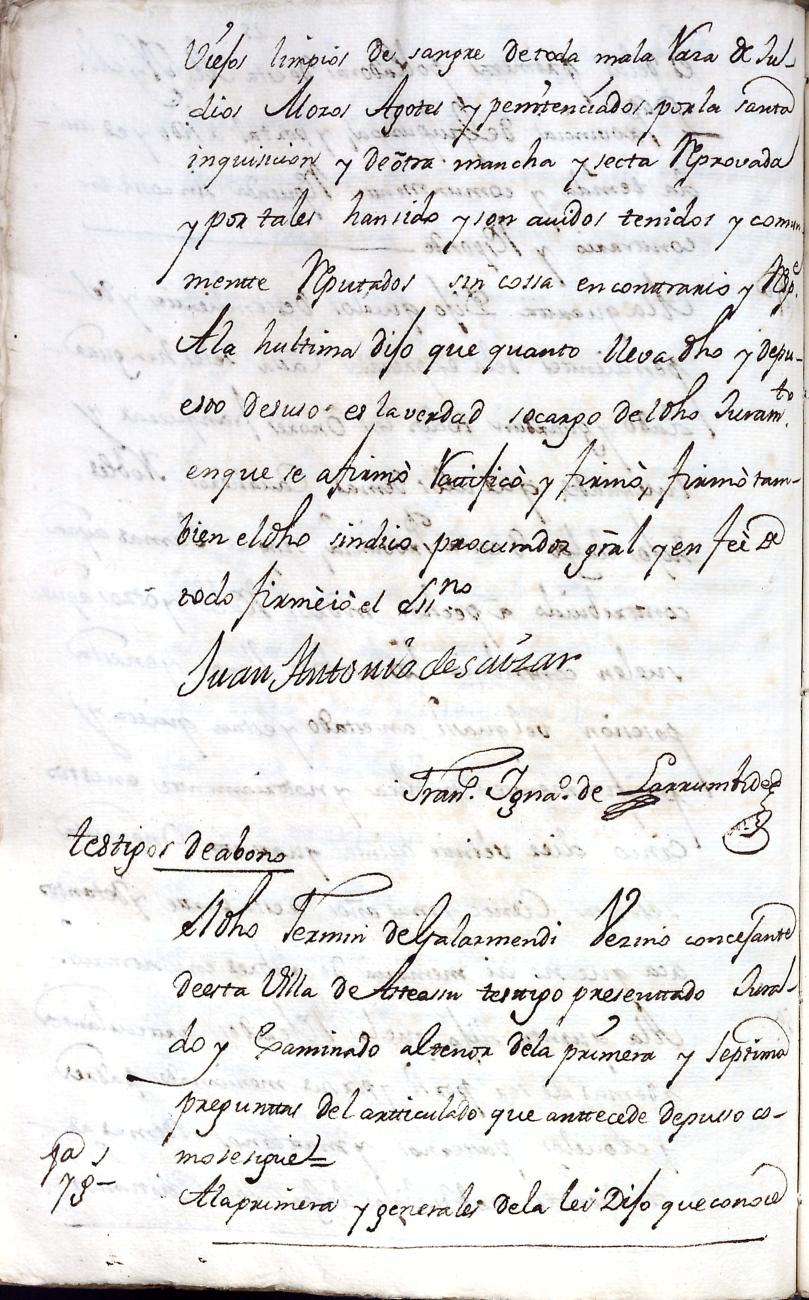 Viejos limpios de sangre de toda mala Raza de Ju-
dios Moros Agotes y penitenciados por la santa
inquisicion y de otra mancha y secta Reprovada
y por tales han sido y son auidos tenidos y comun
mentte Reputados sin cossa en conttrario y Respe.
A la hultima dijo que quanto lleva dho y depu-
esto desuso es la verdad socargo del dho Juramto.
en que se afirmò Rattificò y firmò, firmò tam-
bien el dho sindico procurador gral y en feè de
todo firmè io el Ssno
Juan Antonio de saizar
Frano. Ignao. de Larrumbide
testigos de abono
El dho Fermin de Galarmendi Vezino concejante
de esta Villa de Asteasu testigo presenttado Jura-
do y Examinado al tenor de la primera y septima
pregunttas del artticulado que anttecede depusso co-
mo se sigue=
1a y
7a-
A la primera y generales de la lei Dijo que conoce